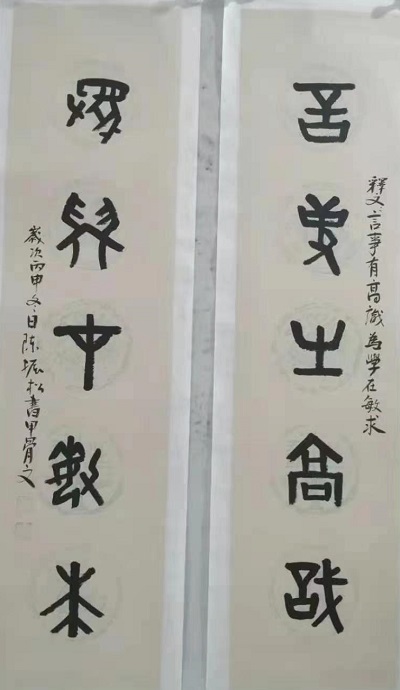 釋文言事有高識為學在敏求
言事有高識
為學在敏求
歲次丙申冬日陈振松書甲骨文